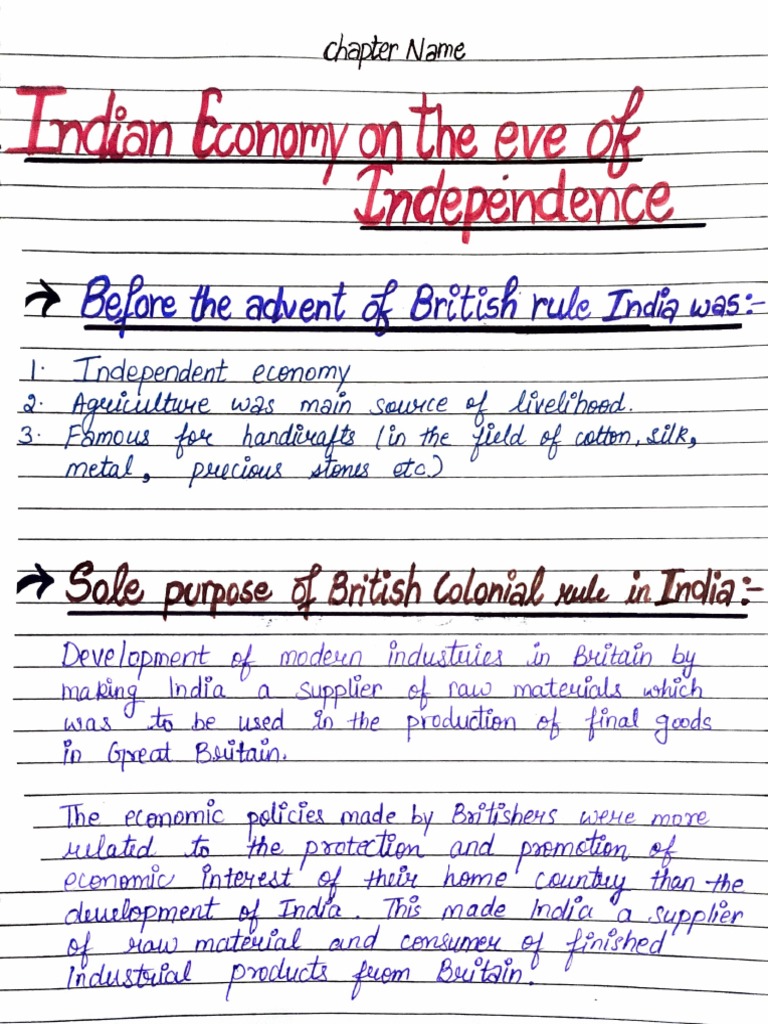 Chapter Name
Indian Economy on the eve of
Independence
→ Before the advent of British rule India was:-
1. Independent economy
2. Agriculture was main source of livelihood.
3. Famous for handicrafts (in the field of cotton, silk,
metal, precious stones etc.)
→ Sole purpose of British Colonial rule in India:-
Development of modern industries in Britain by
making India a supplier of raw materials which
was to be used in the production of final goods
in Great Britain.
The economic policies made by Britishers were more
related to the protection and promotion of
economic interest of their home country than the
development of India. This made India a supplier
of raw material and consumer of finished
industrial products from Britain.